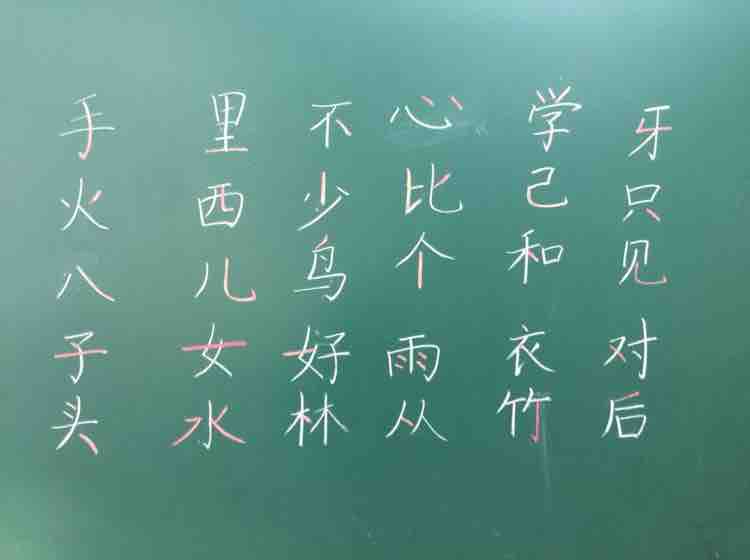 手里不心学牙
火西少比己只
八儿鸟个和见
子女好雨衣对
头水林从竹后